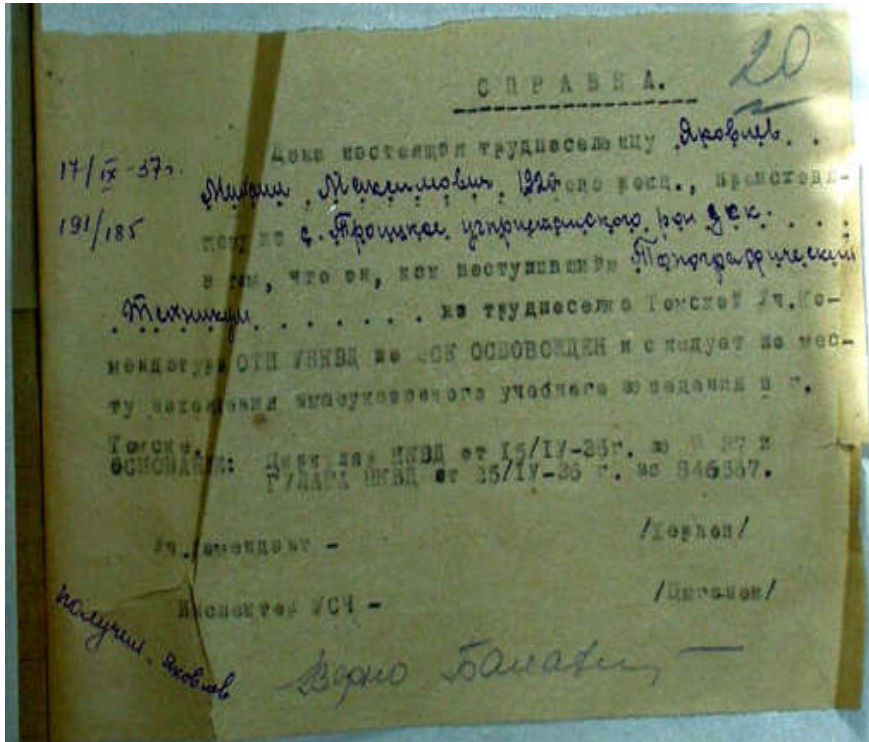 20
СПРАВКА.
17/IX-37г.
191/185
Дана настоящая трудпоселенцу Яковлев . .
Максимович, 1920
с. Троицкое, рон ЗСК. . . .
в том, что он, как поступивший Топографический
Техникум . . . . . . . из трудпоселка Томской Уч.Ко-
мендатуры ОТП УНКВД по ЗСК ОСВОБОЖДЕН и следует по мес-
ту нахождения вышеуказанного учебного заведения в г.
Томске.
ОСНОВАНИЕ: Циркуляр НКВД от 15/IV-36г. за № 37 и
ГУЛАГА НКВД от 25/IV-36 г. за 846567.
Уч.Комендант -
Инспектор УСЧ - /Цыганов/
получил. Яковлев
Верно